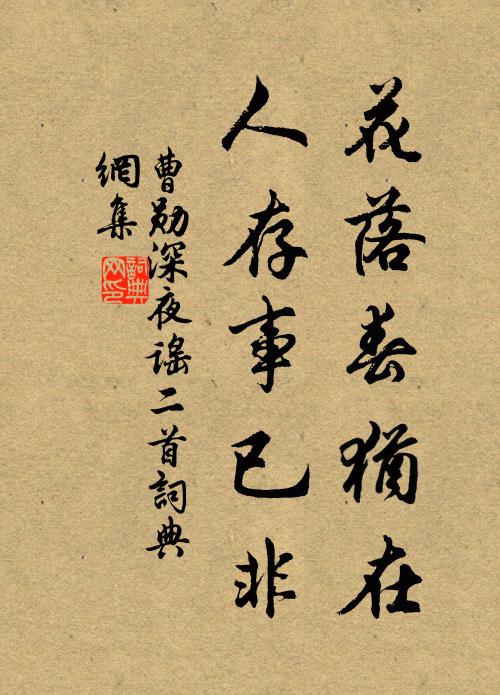 花落春猶在
人存事已非
曹勛深夜謠二首詞典
網集
詞典
網印